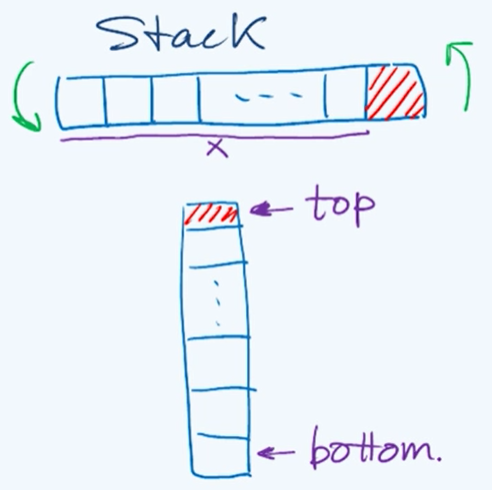 Stack
x
top
bottom.